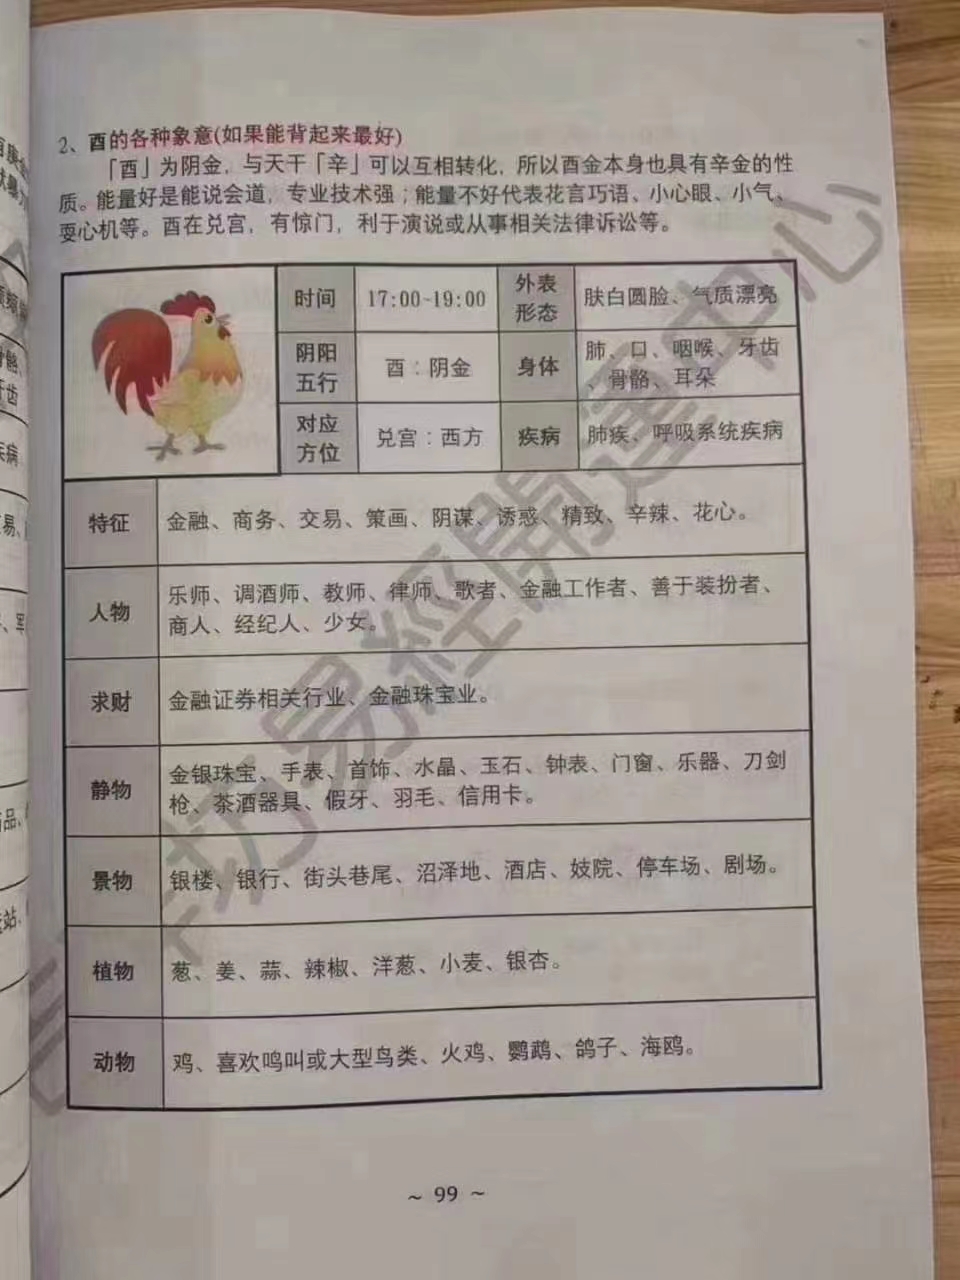 2、酉的各种象意(如果能背起来最好)
「酉」为阴金，与天干「辛」可以互相转化，所以酉金本身也具有辛金的性
质。能量好是能说会道，专业技术强；能量不好代表花言巧语、小心眼、小气、
耍心机等。酉在兑宫，有惊门，利于演说或从事相关法律诉讼等。
时间
17:00~19:00
外表
形态
肤白圆脸、气质漂亮
阴阳
五行
酉：阴金
身体
肺、口、咽喉、牙齿
、骨骼、耳朵
对应
方位
兑宫：西方
疾病
肺疾、呼吸系统疾病
特征
金融、商务、交易、策画、阴谋、诱惑、精致、辛辣、花心。
人物
乐师、调酒师、教师、律师、歌者、金融工作者、善于装扮者、
商人、经纪人、少女。
求财
金融证券相关行业、金融珠宝业。
静物
金银珠宝、手表、首饰、水晶、玉石、钟表、门窗、乐器、刀剑
枪、茶酒器具、假牙、羽毛、信用卡。
景物
银楼、银行、街头巷尾、沼泽地、酒店、妓院、停车场、剧场。
植物
葱、姜、蒜、辣椒、洋葱、小麦、银杏。
动物
鸡、喜欢鸣叫或大型鸟类、火鸡、鹦鹉、鸽子、海鸥。
~ 99 ~
易經開運中心